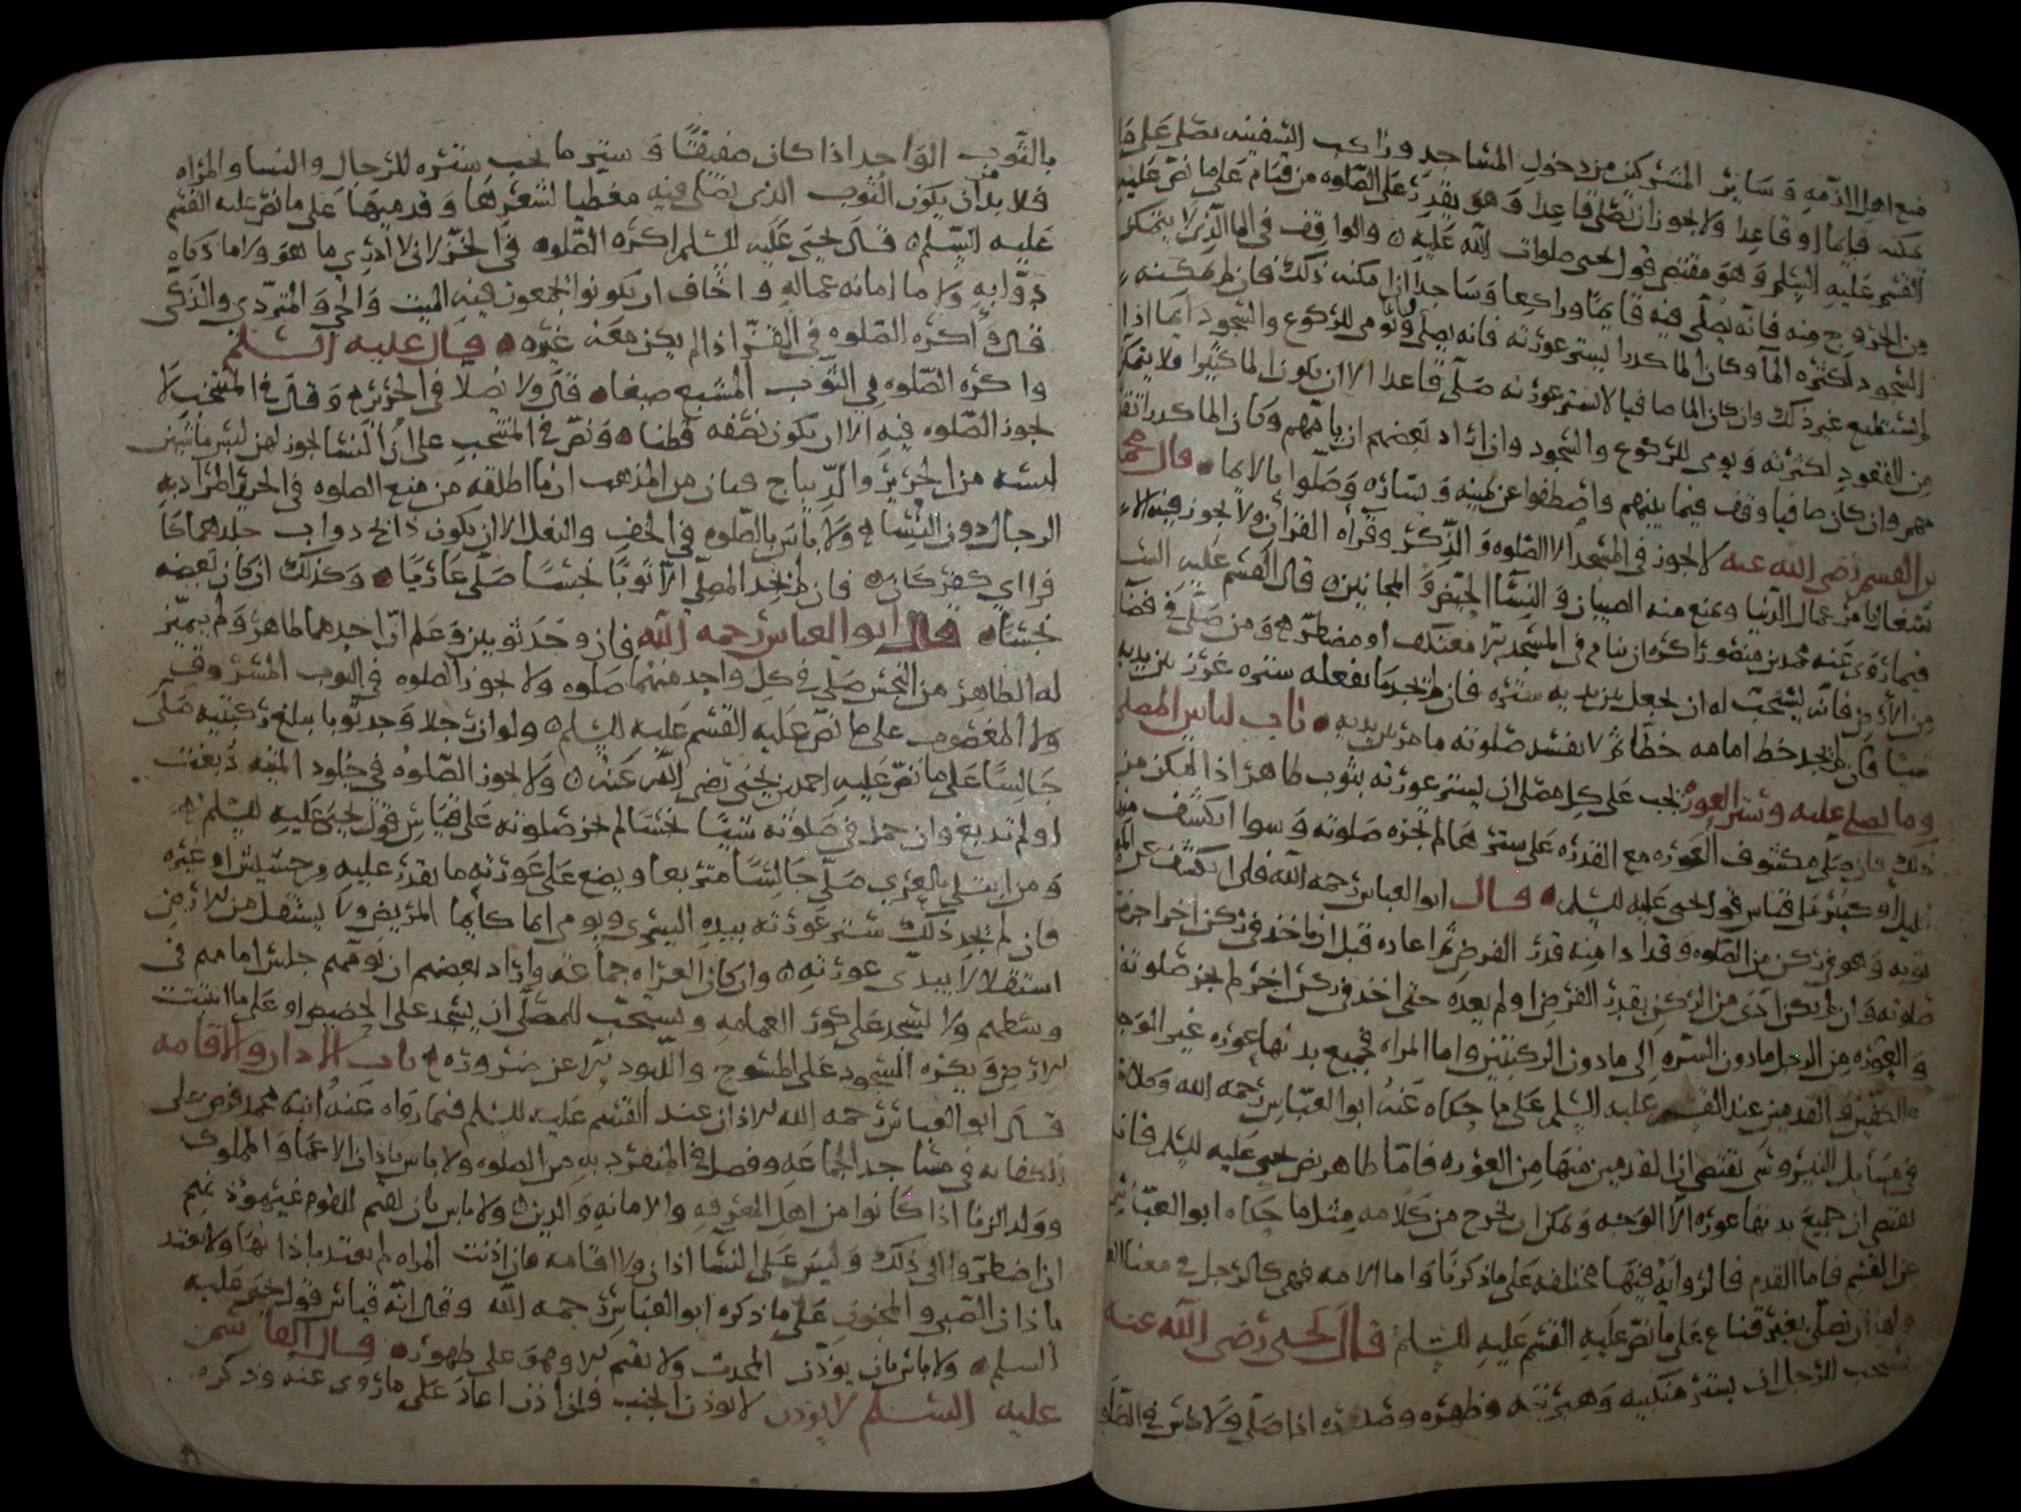 منع اهل الذمه وسائر المشركين من دخول المساجد وراكب السفينه يصلي على ما
يمكنه قايما او قاعدا ولا يجوز ان يصلي قاعدا وهو يقدر على الصلوه من قيام على ما نص عليه
القسم عليه السلم وهو مقتضى قول يحيى صلوات الله عليه والواقف في الما الذي لا يتمكن
من الخروج منه فانه يصلي فيه قايما وراكعا وساجدا ان امكنه ذلك فان لم يمكنه
السجود لكثره الما وكان الما كدرا يستر عورته فانه يصلي ويومي للركوع والسجود ايما اذا
لم يستطيع غير ذلك وان كان الما صافيا لا يستر عورته صلى قاعدا الا ان يكون الما كثيرا فلا يتمكن
من القعود لكثرته ويومي للركوع والسجود وان اراد بعضهم ان يامهم وكان الما كدرا تقدم
مهم وان كان صافيا وقف فيما بينهم واصطفوا عن يمينه ويساره وصلوا بالايما قال محمد
بن القسم رضي الله عنه لا يجوز في المسجد الا الصلوه والذكر وقراه القران ولا يجوز فيه الا
شتغال من عمال الدنيا ويمنع منه الصبيان والنسا الحيض والمجانين قال القسم عليه السلم
فيما روى عنه محمد بن منصور اكره ان ينام في المسجد الا معتكف او مضطر ومن صلى في فضا
من الارض فانه يستحب له ان يجعل بين يديه ستره فان لم يجد ما يفعله ستره غرز بين يديه
شيا فان لم يجد خط امامه خطا ثم لا يفسد صلوته ما مر بين يديه باب لباس المصلي
وما يصلى عليه وستر العوره يجب على كل مصلي ان يستر عورته بثوب طاهر اذا امكن من
ذلك فان صلى مكشوف العوره مع القدره على سترها لم تجزه صلوته وسوا انكشف منه
قليل او كثير على قياس قول يحيى عليه السلم قال ابو العباس رحمه الله فلو انكشف عن
ثوبه وهو في ركن من الصلوه وقد ادا منه قدر الفرض ثم اعاده قبل ان ياخذ في ركن اخر اجزت
صلوته وان لم يكن ادى من الركن بقدر الفرض او لم يعده حتى اخذ في ركن اخر لم يجز صلوته
والعوره من الرجل ما دون السره الى ما دون الركبتين واما المراه فجميع بدنها عوره غير الوجه
والكفين والقدمين عند القسم عليه السلم على ما حكاه عنه ابو العباس رحمه الله وكلامه
في مسايل النيروسي يقتضي ان القدمين منها من العوره فاما ظاهر نص يحيى عليه السلم فانه
يقتضي ان جميع بدنها عوره الا الوجه ويمكن ان يخرج من كلامه مثل ما حكاه ابو العباس
عن القسم فاما القدم فالروايه فيها مختلفه على ما ذكرنا واما الامه فهي كالرجل في معنا
ولها ان تصلي بغير قناع على ما نص عليه القسم عليه السلم قال يحيى رضي الله عنه
يستحب للرجل ان يستر منكبيه وهبريته وظهره وصدره اذا صلى ولا باس في الصلوه
بالثوب الواحد اذا كان صفيقا وستر ما يجب ستره للرجال والنسا والمراه
فلا بد من ان يكون الثوب الذي يصلى فيه مغطيا لشعرها وقدميها على ما نص عليه القسم
عليه السلم قال يحيى عليه السلم اكره الصلوه في الخز لاني لا ادري ما هو ولا ما ذكاه
دوابه ولا ما امانه عماله واخاف ان يكونوا يجمعون فيه الميت والحي والمتردي والذكي
قال واكره الصلوه في القز اذا لم يكن معه غيره قال عليه السلم
واكره الصلوه في الثوب المشبع صبغا قال ولا يصلا في الحرير وقال في المنتخب لا
يجوز الصلوه فيه الا ان يكون نصفه قطنا ونص في المنتخب على ان النسا يجوز لهن لبس ما شين
لبسه من الحرير والديباج فبان من المذهب ان ما اطلقه من منع الصلوه في الحرير المراد به
الرجال دون النسا ولا باس بالصلوه في الخف والنعل الا ان يكون ذلك من دواب جلدهما كان
فرا اي كفر كان فان لم يجد المصلي الا ثوبا نجسا صلى عاريا وكذلك ان كان بعضه
نجسا قال ابو العباس رحمه الله فان وجد ثوبين وعلم ان احدهما طاهر ولم يميز
له الطاهر من النجس صلى في كل واحد منهما صلوه ولا يجوز الصلوه في الثوب المسروق
ولا المغصوب على ما نص عليه القسم عليه السلم ولو ان رجلا وجد ثوبا يبلغ ركبتيه صلى
جالسا على ما نص عليه احمد بن يحيى رضي الله عنه ولا يجوز الصلوه في جلود الميته دبغت
او لم تدبغ وان حمل في صلوته شيا نجسا لم تجز صلوته على قياس قول يحيى عليه السلم
ومن ابتلي بالعري صلى جالسا متربعا ويضع على عورته ما يقدر عليه من حشيش او غيره
فان لم يجد ذلك ستر عورته بيده اليسرى ويومي ايما كايما المريض ولا يستقل من الارض
استقلالا يبدي عورته وان كان العراه جماعه واراد بعضهم ان يومهم جلس امامهم في
وسطهم ولا يسجد على كور العمامه ويستحب للمصلي ان يسجد على الحضيض او على ما انبتت
الارض ويكره السجود على المسوح واللبود الا عن ضروره باب الاذان والاقامه
قال ابو العباس رحمه الله الاذان عند القسم عليه السلم فيما رواه عنه ابنه محمد فرض على
الكفايه في مساجد الجماعه وفصل في المنفرد به من الصلوه ولا باس باذان الاعما والمملوك
وولد الزنا اذا كانوا من اهل المعرفه والامانه والدين ولا باس بان يقيم للقوم غير موذنهم
اذا اضطروا الى ذلك وليس على النسا اذان ولا اقامه فان اذنت المراه لم يعتد باذانها ولا يعتد
باذان الصبي والمجنون على ما ذكره ابو العباس رحمه الله وقال انه قياس قول يحيى عليه
السلم ولا باس بان يوذن المحدث ولا يقيم الا وهو على طهوره قال القاسم
عليه السلم لا يوذن لا يوذن الجنب فان اذن اعاد على ما روى عنه وذكره